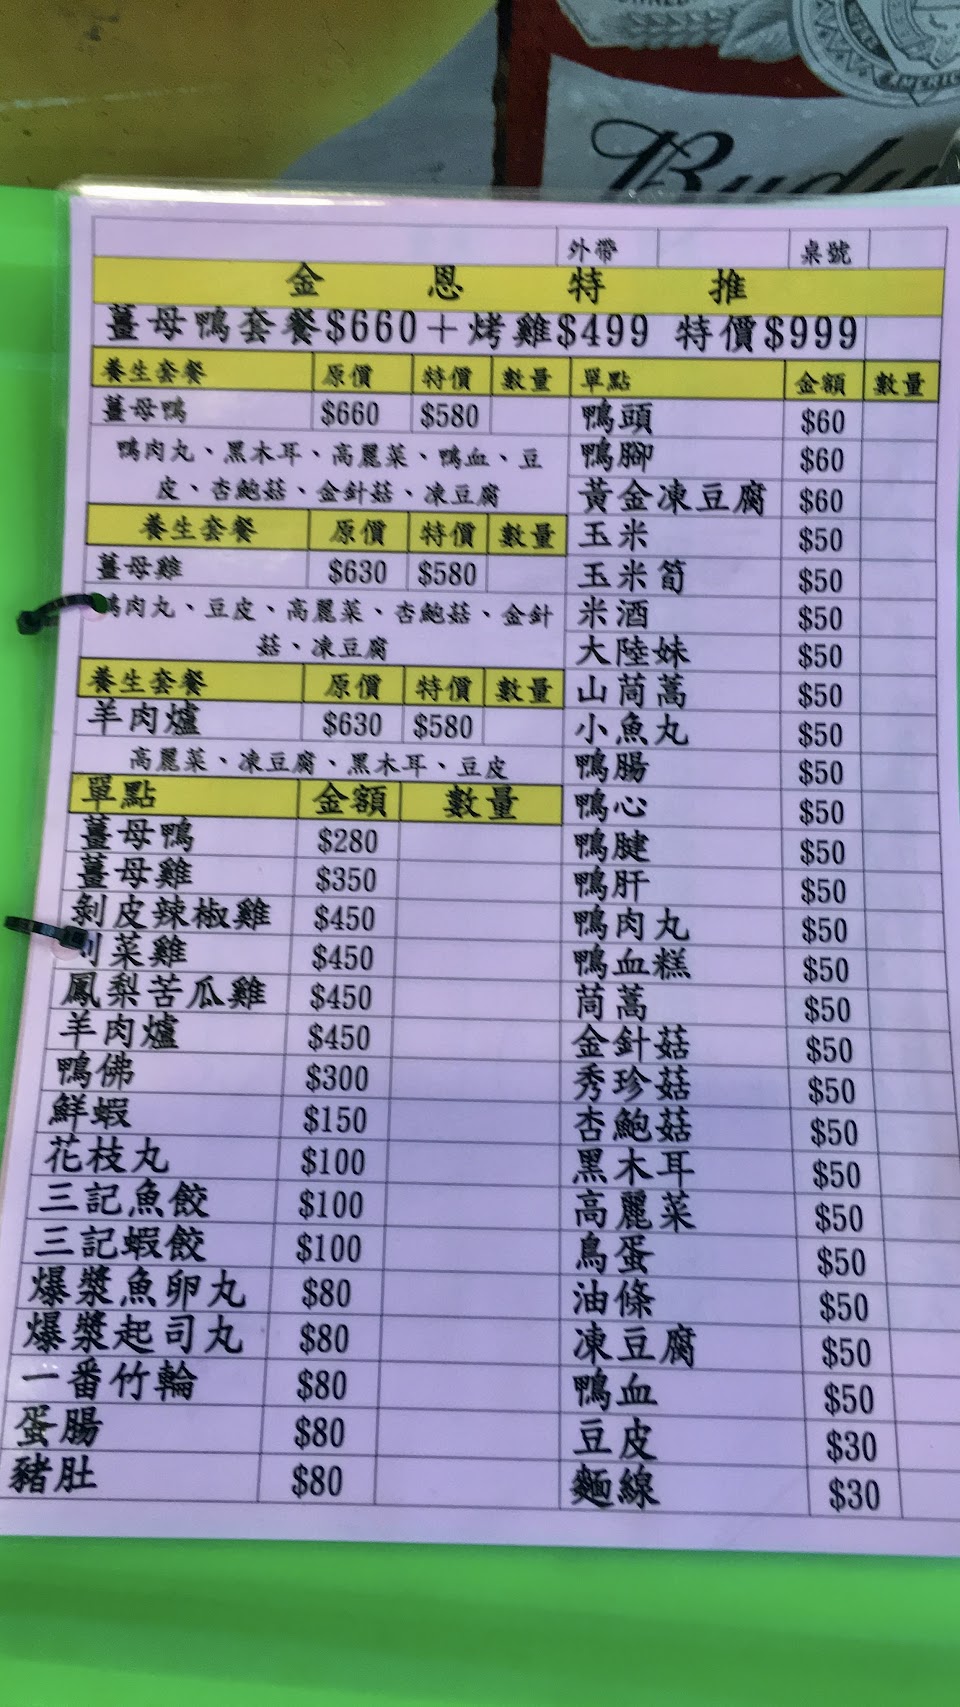 Budw
外帶 桌號
金恩特推
薑母鴨套餐$660＋烤雞$499 特價$999
養生套餐 原價 特價 數量
薑母鴨 $660 $580
鴨肉丸、黑木耳、高麗菜、鴨血、豆
皮、杏鮑菇、金針菇、凍豆腐
養生套餐 原價 特價 數量
薑母雞 $630 $580
鴨肉丸、豆皮、高麗菜、杏鮑菇、金針
菇、凍豆腐
養生套餐 原價 特價 數量
羊肉爐 $630 $580
高麗菜、凍豆腐、黑木耳、豆皮
單點 金額 數量
薑母鴨 $280
薑母雞 $350
剝皮辣椒雞 $450
菜雞 $450
鳳梨苦瓜雞 $450
羊肉爐 $450
鴨佛 $300
鮮蝦 $150
花枝丸 $100
三記魚餃 $100
三記蝦餃 $100
爆漿魚卵丸 $80
爆漿起司丸 $80
一番竹輪 $80
蛋腸 $80
豬肚 $80
單點 金額 數量
鴨頭 $60
鴨腳 $60
黃金凍豆腐 $60
玉米 $50
玉米筍 $50
米酒 $50
大陸妹 $50
山茼蒿 $50
小魚丸 $50
鴨腸 $50
鴨心 $50
鴨腱 $50
鴨肝 $50
鴨肉丸 $50
鴨血糕 $50
茼蒿 $50
金針菇 $50
秀珍菇 $50
杏鮑菇 $50
黑木耳 $50
高麗菜 $50
鳥蛋 $50
油條 $50
凍豆腐 $50
鴨血 $50
豆皮 $30
麵線 $30